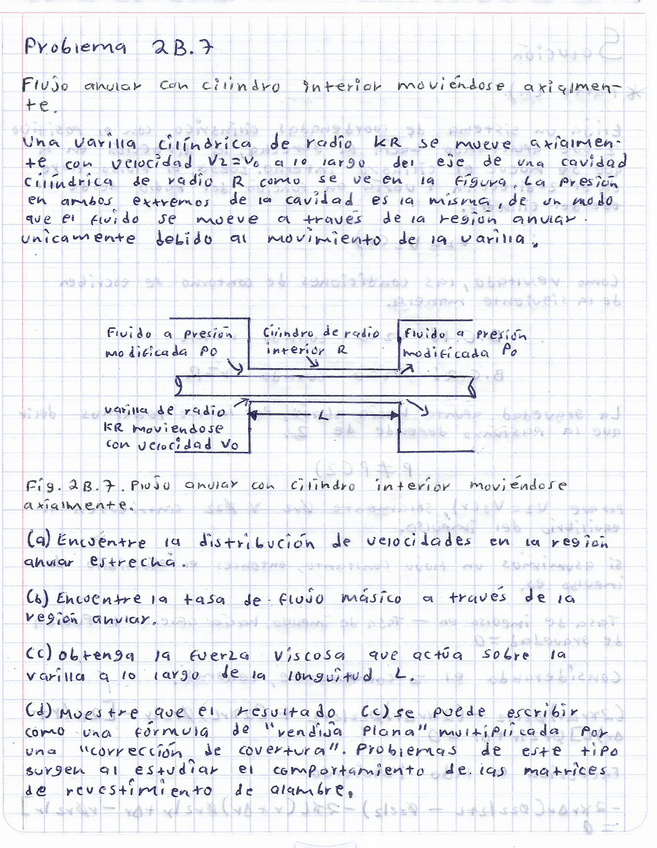 Problema 2B.7
Flujo anular con cilindro interior moviéndose axialmen-
te.
Una varilla cilíndrica de radio KR se mueve axialmen-
te con velocidad Vz=V0 a lo largo del eje de una cavidad
cilíndrica de radio R como se ve en la figura. La presión
en ambos extremos de la cavidad es la misma, de un modo
que el fluido se mueve a través de la región anular
unicamente debido al movimiento de la varilla.
Fluido a presión
modificada P0
Cilindro de radio
interior R
Fluido a presión
modificada P0
varilla de radio
KR moviendose
con velocidad V0
L
Fig. 2B.7. Flujo anular con cilindro interior moviéndose
axialmente.
(a) Encuentre la distribución de velocidades en la región
anular estrecha.
(b) Encuentre la tasa de flujo másico a través de la
región anular.
(c) Obtenga la fuerza viscosa que actúa sobre la
varilla a lo largo de la longuitud L.
(d) Muestre que el resultado (c) se puede escribir
como una fórmula de "rendija plana" multiplicada por
una "corrección de covertura". Problemas de este tipo
surgen al estudiar el comportamiento de las matrices
de revestimiento de alambre.